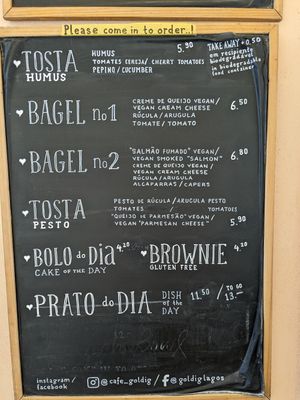 Please come in to order..!
TAKE AWAY +0.50
em recipiente
biodegradável
in biodegradable
food container
TOSTA
HUMUS
HUMUS 5.90
TOMATES CEREJA/ CHERRY TOMATOES
PEPINO / CUCUMBER
BAGEL no1
CREME DE QUEIJO VEGAN/ 6.50
VEGAN CREAM CHEESE
RÚCULA/ARUGULA
TOMATE / TOMATO
BAGEL no2
"SALMÃO FUMADO" VEGAN/ 6.80
VEGAN SMOKED "SALMON"
CREME DE QUEIJO VEGAN /
VEGAN CREAM CHEESE
RÚCULA / ARUGULA
ALCAPARRAS / CAPERS
TOSTA
PESTO
PESTO DE RÚCULA/ARUGULA PESTO
TOMATES / TOMATOES
"QUEIJO DE PARMESÃO" VEGAN/
VEGAN "PARMESAN CHEESE" 5.90
BOLO do Dia 4.20
CAKE of the DAY
BROWNIE 4.20
GLUTEN FREE
PRATO do DIA
DISH of the DAY
11.50 / TO GO 13.—
instagram/
facebook
@cafe_goldig / @goldiglagos